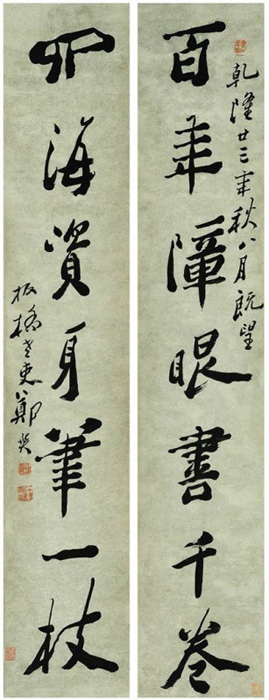 百年障眼書千卷
乾隆廿三年秋八月既望
四海資身筆一枝
板橋老叟鄭燮